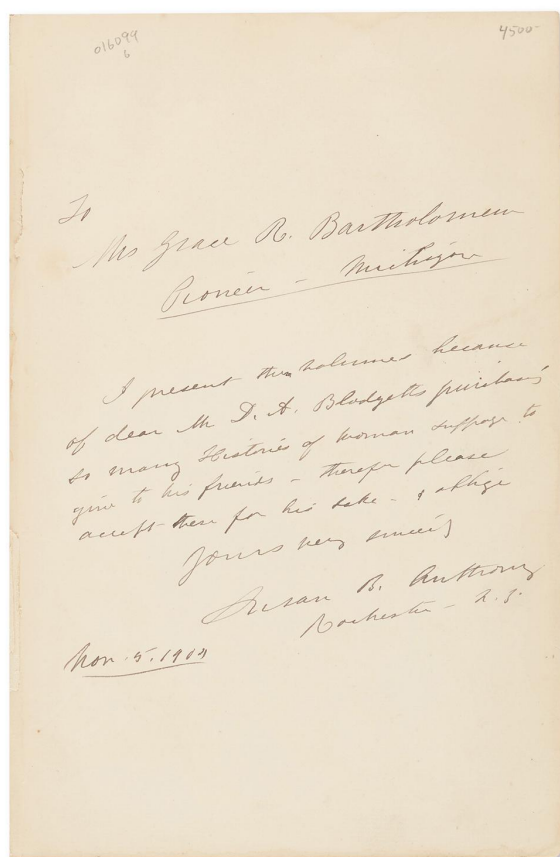 016099
6
4500-
To
Ms Grace R. Bartholomew
Pioneer - Michigan
I present these volumes because
of dear Mr D. A. Blodgetts purchasing
so many Histories of Woman Suffrage to
give to his friends - therefor please
accept these for his sake - & oblige
Yours very sincerely
Susan B. Anthony
Rochester - N.Y.
Nov. 5. 1903